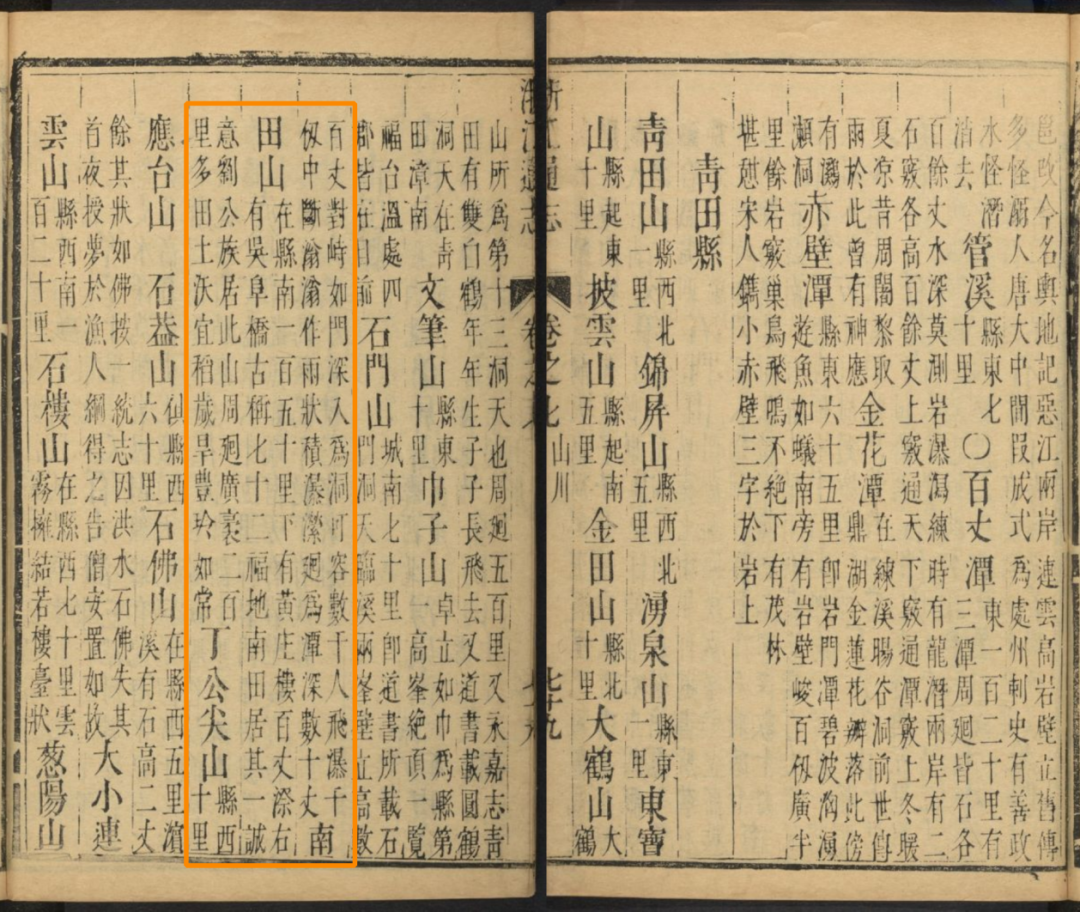 邑政今名輿地記惡江兩岸連雲高岩壁立舊傳
多怪溺人唐大中間段成式為處州刺史有善政
水怪潛消去管溪縣東七十里〇百丈潭東一百二十里有三潭周廻皆石各
百餘丈水深莫測岩瀑瀉練時有龍潛兩岸有二
石竅各高百餘丈上竅通天下竅通潭竅上冬暖
夏凉昔周闇黎取雨於此曾有神應金花潭在練溪暘谷洞前世傳鼎湖金蓮花瓣落此傍
有瀉瀬洞赤壁潭縣東六十五里卽岩門潭碧波洶湧遊魚如蟻南旁有岩壁峻百仭廣半
里餘岩竅巢鳥飛鳴不絶下有茂林
堪憇宋人鐫小赤壁三字於岩上
青田縣
青田山縣西北一里錦屏山縣西北五里湧泉山縣東一里東寶
山縣起東十里披雲山縣起南五里金田山縣北十里大鶴山大鶴
浙江通志 卷之九 山川 七十九
山所為第十三洞天也周廻五百里又永嘉志青
田有雙白鶴年年生子子長飛去又道書載圓鶴
洞天在青田漳南文筆山縣東十里巾子山卓立如巾爲縣第一高峯絶頂一覽
福台溫處四郡皆在目前石門山城南七十里卽道書所載石門洞天臨溪兩峯壁立高數
百丈對峙如門深入爲洞可容數千人飛瀑千
仭中斷滃滃作雨狀積瀑瀠廻爲潭深數十丈南
田山在縣南一百五十里下有黃庄樓百丈漈右有吳阜橋古稱七十二福地南田居其一誠
意劉公族居此山周廻廣袤二百里多田土沃宜稻歲旱豐玲如常丁公尖山縣西十里
應台山石葢山仙縣西六十里石佛山在縣西五里濵溪有石高二丈
餘其狀如佛按一統志因洪水石佛失其首夜授夢於漁人網得之告僧安置如故大小連
雲山縣西南一百二十里石樓山在縣西七十里雲霧擁結若樓臺狀葱陽山